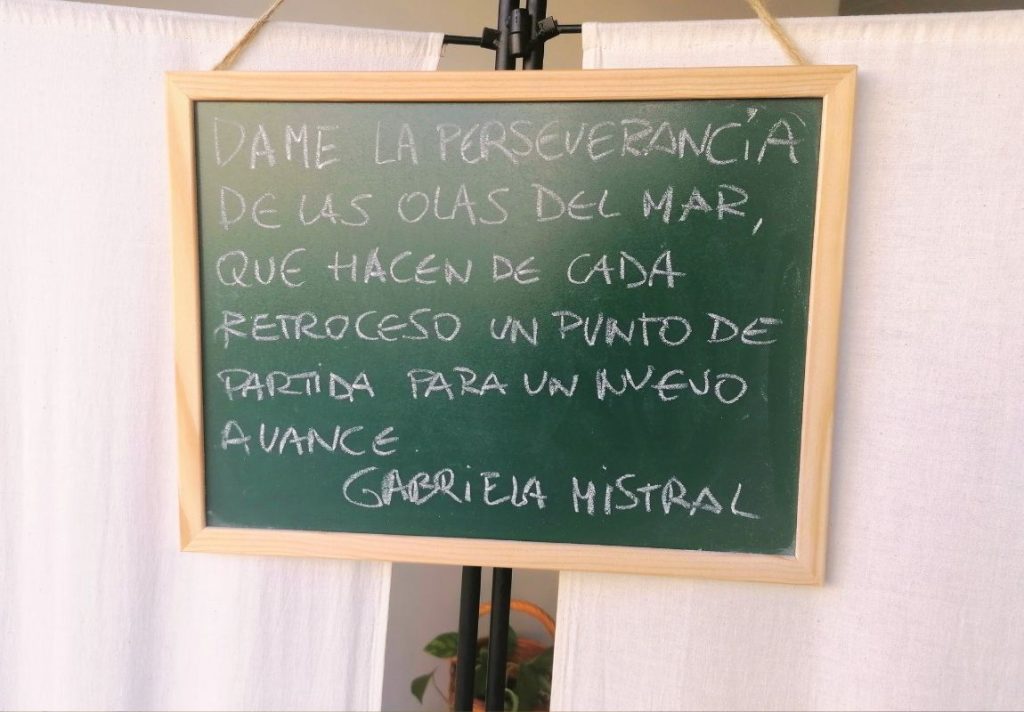 DAME LA PERSEVERANCIA
DE LAS OLAS DEL MAR,
QUE HACEN DE CADA
RETROCESO UN PUNTO DE
PARTIDA PARA UN NUEVO
AVANCE.
GABRIELA MISTRAL